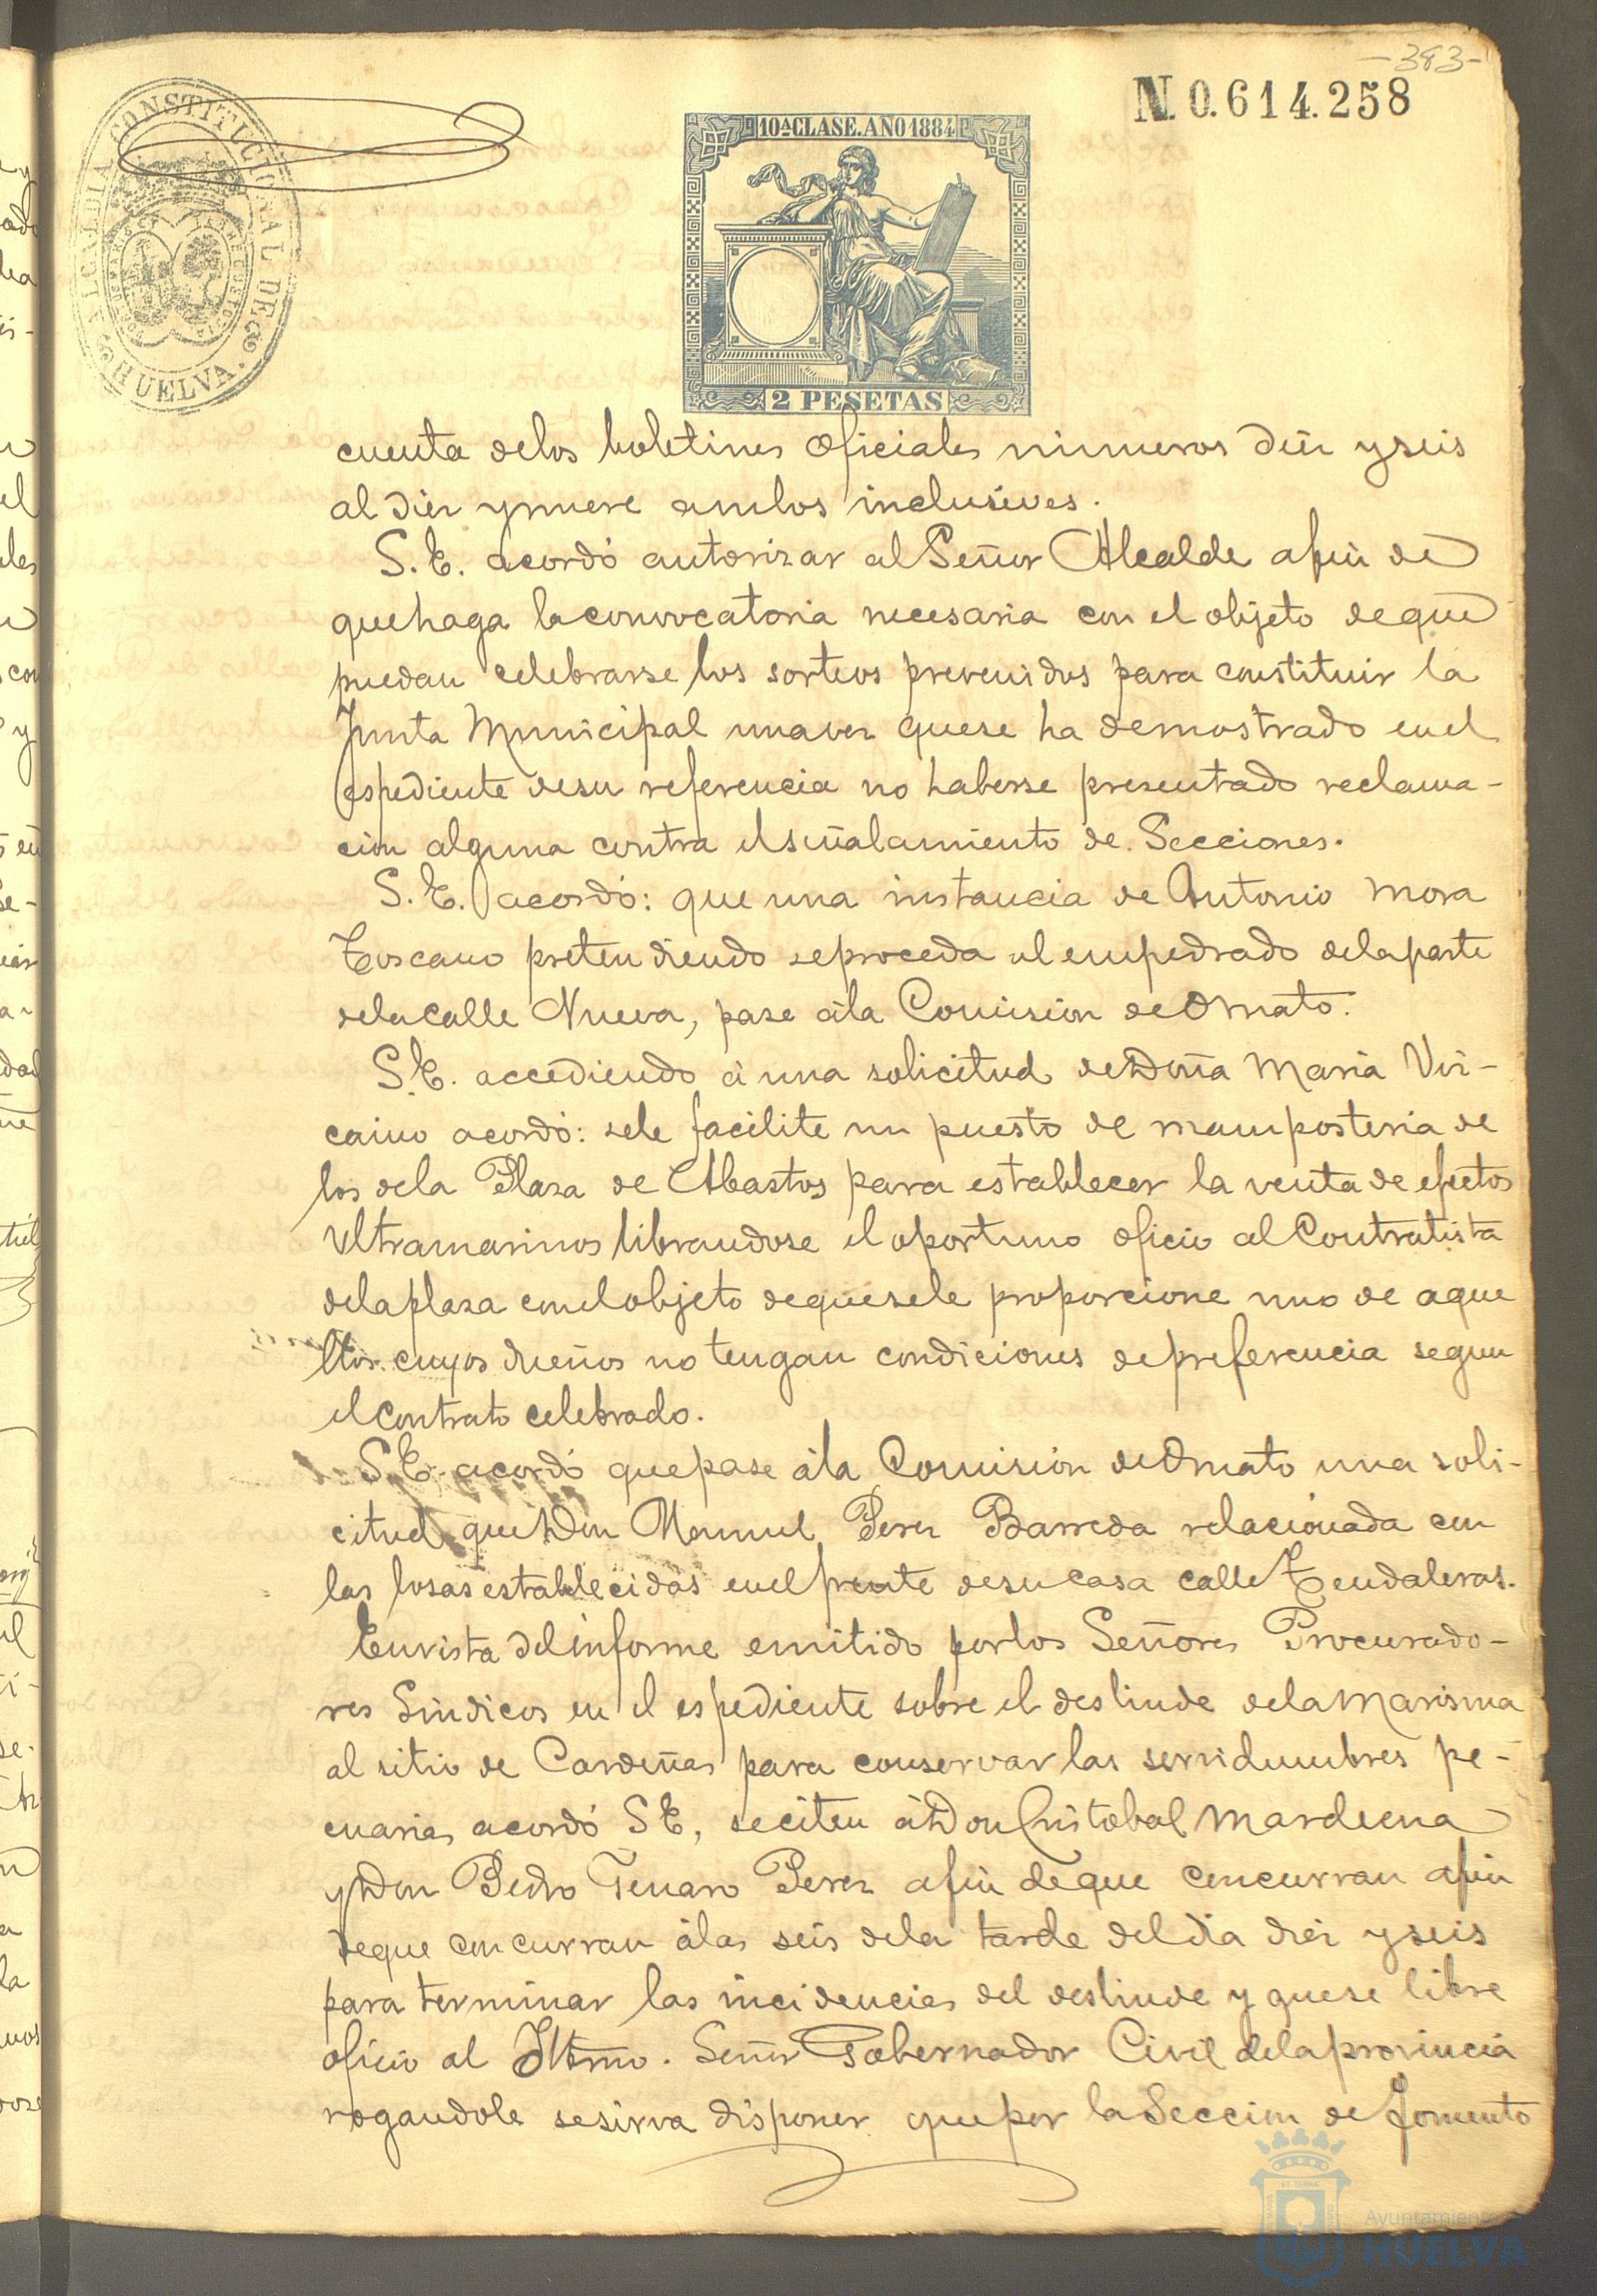 -393-
N. 0.614.258
ALCALDIA CONSTITUCIONAL DE HUELVA.
10ª CLASE. AÑO 1884
2 PESETAS
cuenta de los boletines oficiales números diez y seis
al diez y nueve ambos inclusives.
S. E. acordó autorizar al Señor Alcalde a fin de
que haga la convocatoria necesaria con el objeto de que
puedan celebrarse los sorteos prevenidos para constituir la
Junta Municipal una vez que se ha demostrado en el
espediente de su referencia no haberse presentado reclama-
ción alguna contra el señalamiento de Secciones.
S. E. acordó: que una instancia de Antonio Mora
Toscano pretendiendo se proceda al empedrado de la parte
de la calle Nueva, pase á la Comisión de Ornato.
S. E. accediendo á una solicitud de Doña Maria Viz-
caino acordó: se le facilite un puesto de mamposteria de
los de la Plaza de Abastos para establecer la venta de efectos
Ultramarinos librandose el oportuno oficio al Contratista
de la plaza con el objeto de que se le proporcione uno de aque
llos cuyos dueños no tengan condiciones de preferencia segun
el contrato celebrado.
S. E. acordó que pase á la Comisión de Ornato una soli-
citud que Don Manuel Perez Barreda relacionada con
las losas establecidas en el frente de su casa calle Tendaleras.
En vista del informe emitido por los Señores Procurado-
res Sindicos en el espediente sobre el deslinde de la Marisma
al sitio de Cardeñas para conservar las servidumbres pe-
cuarias acordó S E, se citen á Don Cristobal Mardeena
y Don Pedro Genaro Perez a fin de que concurran a fin
de que concurran á las seis de la tarde del dia diez y seis
para terminar las incidencias del deslinde y que se libre
oficio al Iltmo. Señor Gobernador Civil de la provincia
rogandole se sirva disponer que por la Sección de Fomento
Ayuntamiento
HUELVA